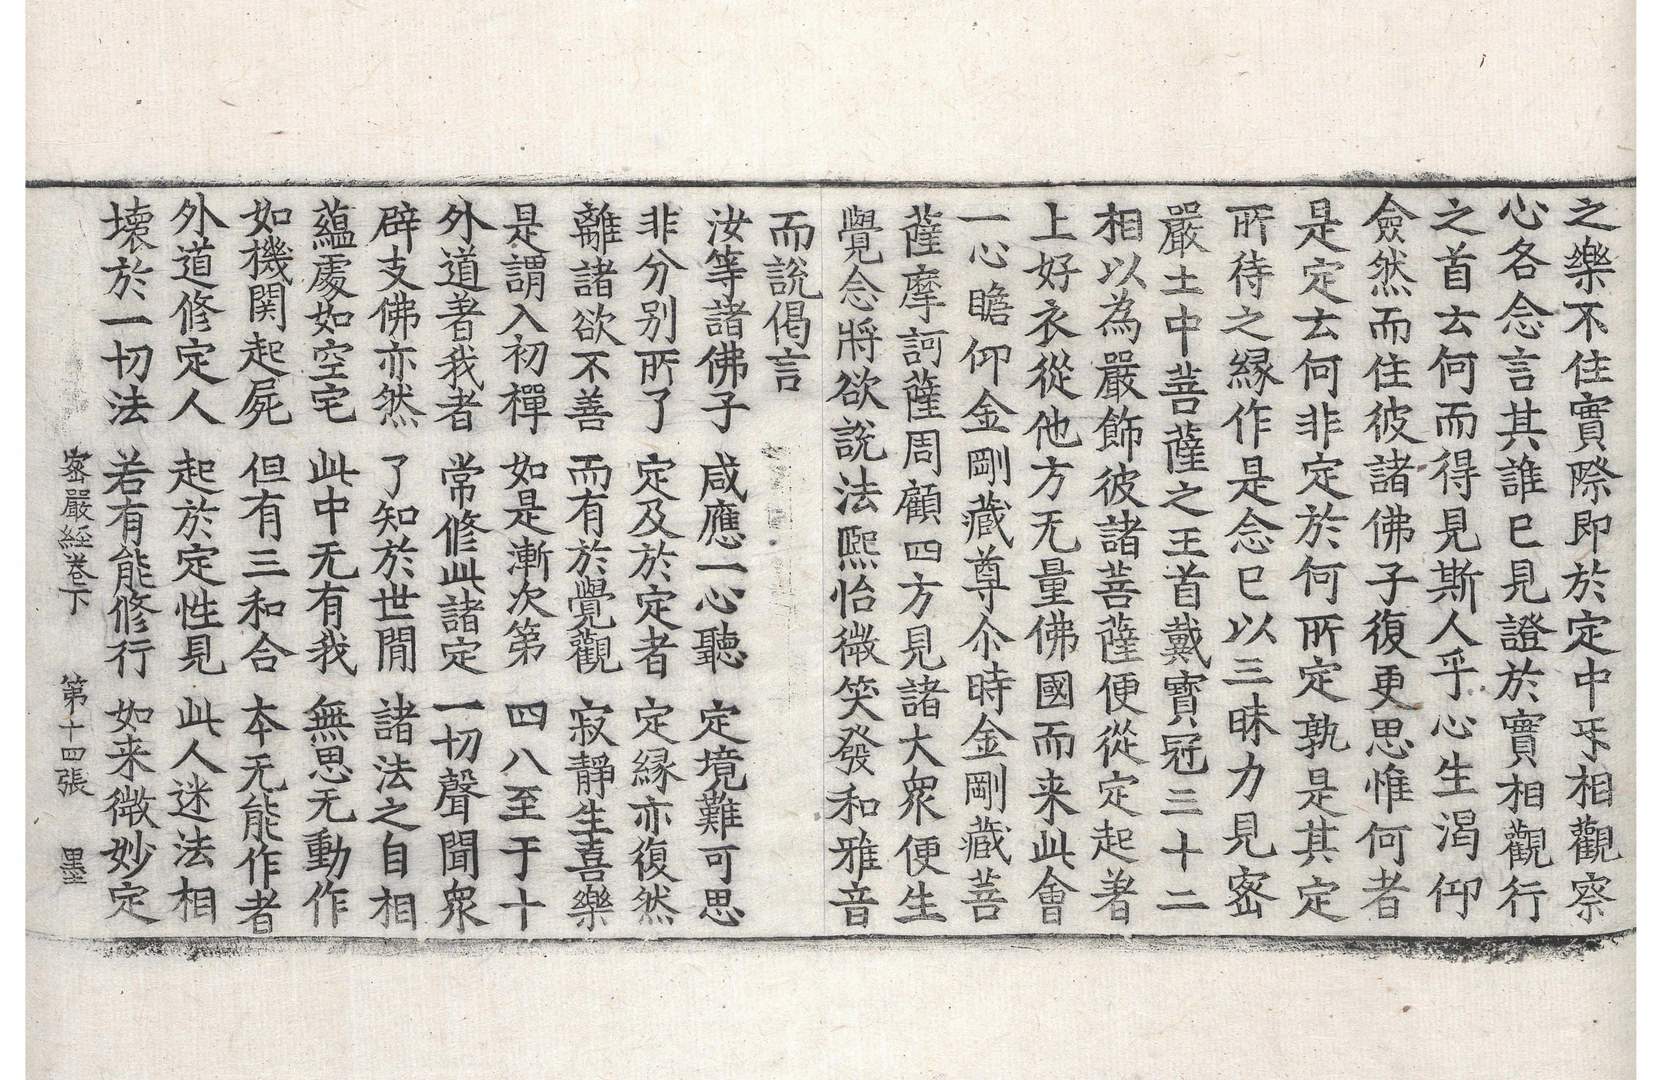 之樂不住實際即於定中互相觀察
心各念言其誰已見證於實相觀行
之首云何而得見斯人乎心生渴仰
僉然而住彼諸佛子復更思惟何者
是定云何非定於何所定孰是其定
所待之緣作是念已以三昧力見密
嚴土中菩薩之王首戴寶冠三十二
相以為嚴飾彼諸菩薩便從定起著
上好衣從他方无量佛國而来此會
一心瞻仰金剛藏尊尒時金剛藏菩
薩摩訶薩周顧四方見諸大衆便生
覺念將欲說法熙怡微笑發和雅音
而說偈言
汝等諸佛子 咸應一心聽 定境難可思
非分別所了 定及於定者 定緣亦復然
離諸欲不善 而有於覺觀 寂靜生喜樂
是謂入初禪 如是漸次第 四八至于十
外道著我者 常修此諸定 一切聲聞衆
辟支佛亦然 了知於世間 諸法之自相
蘊處如空宅 此中无有我 無思无動作
如機関起屍 但有三和合 本无能作者
外道修定人 起於定性見 此人迷法相
壞於一切法 若有能修行 如来微妙定
密嚴經卷下 第十四張 墨